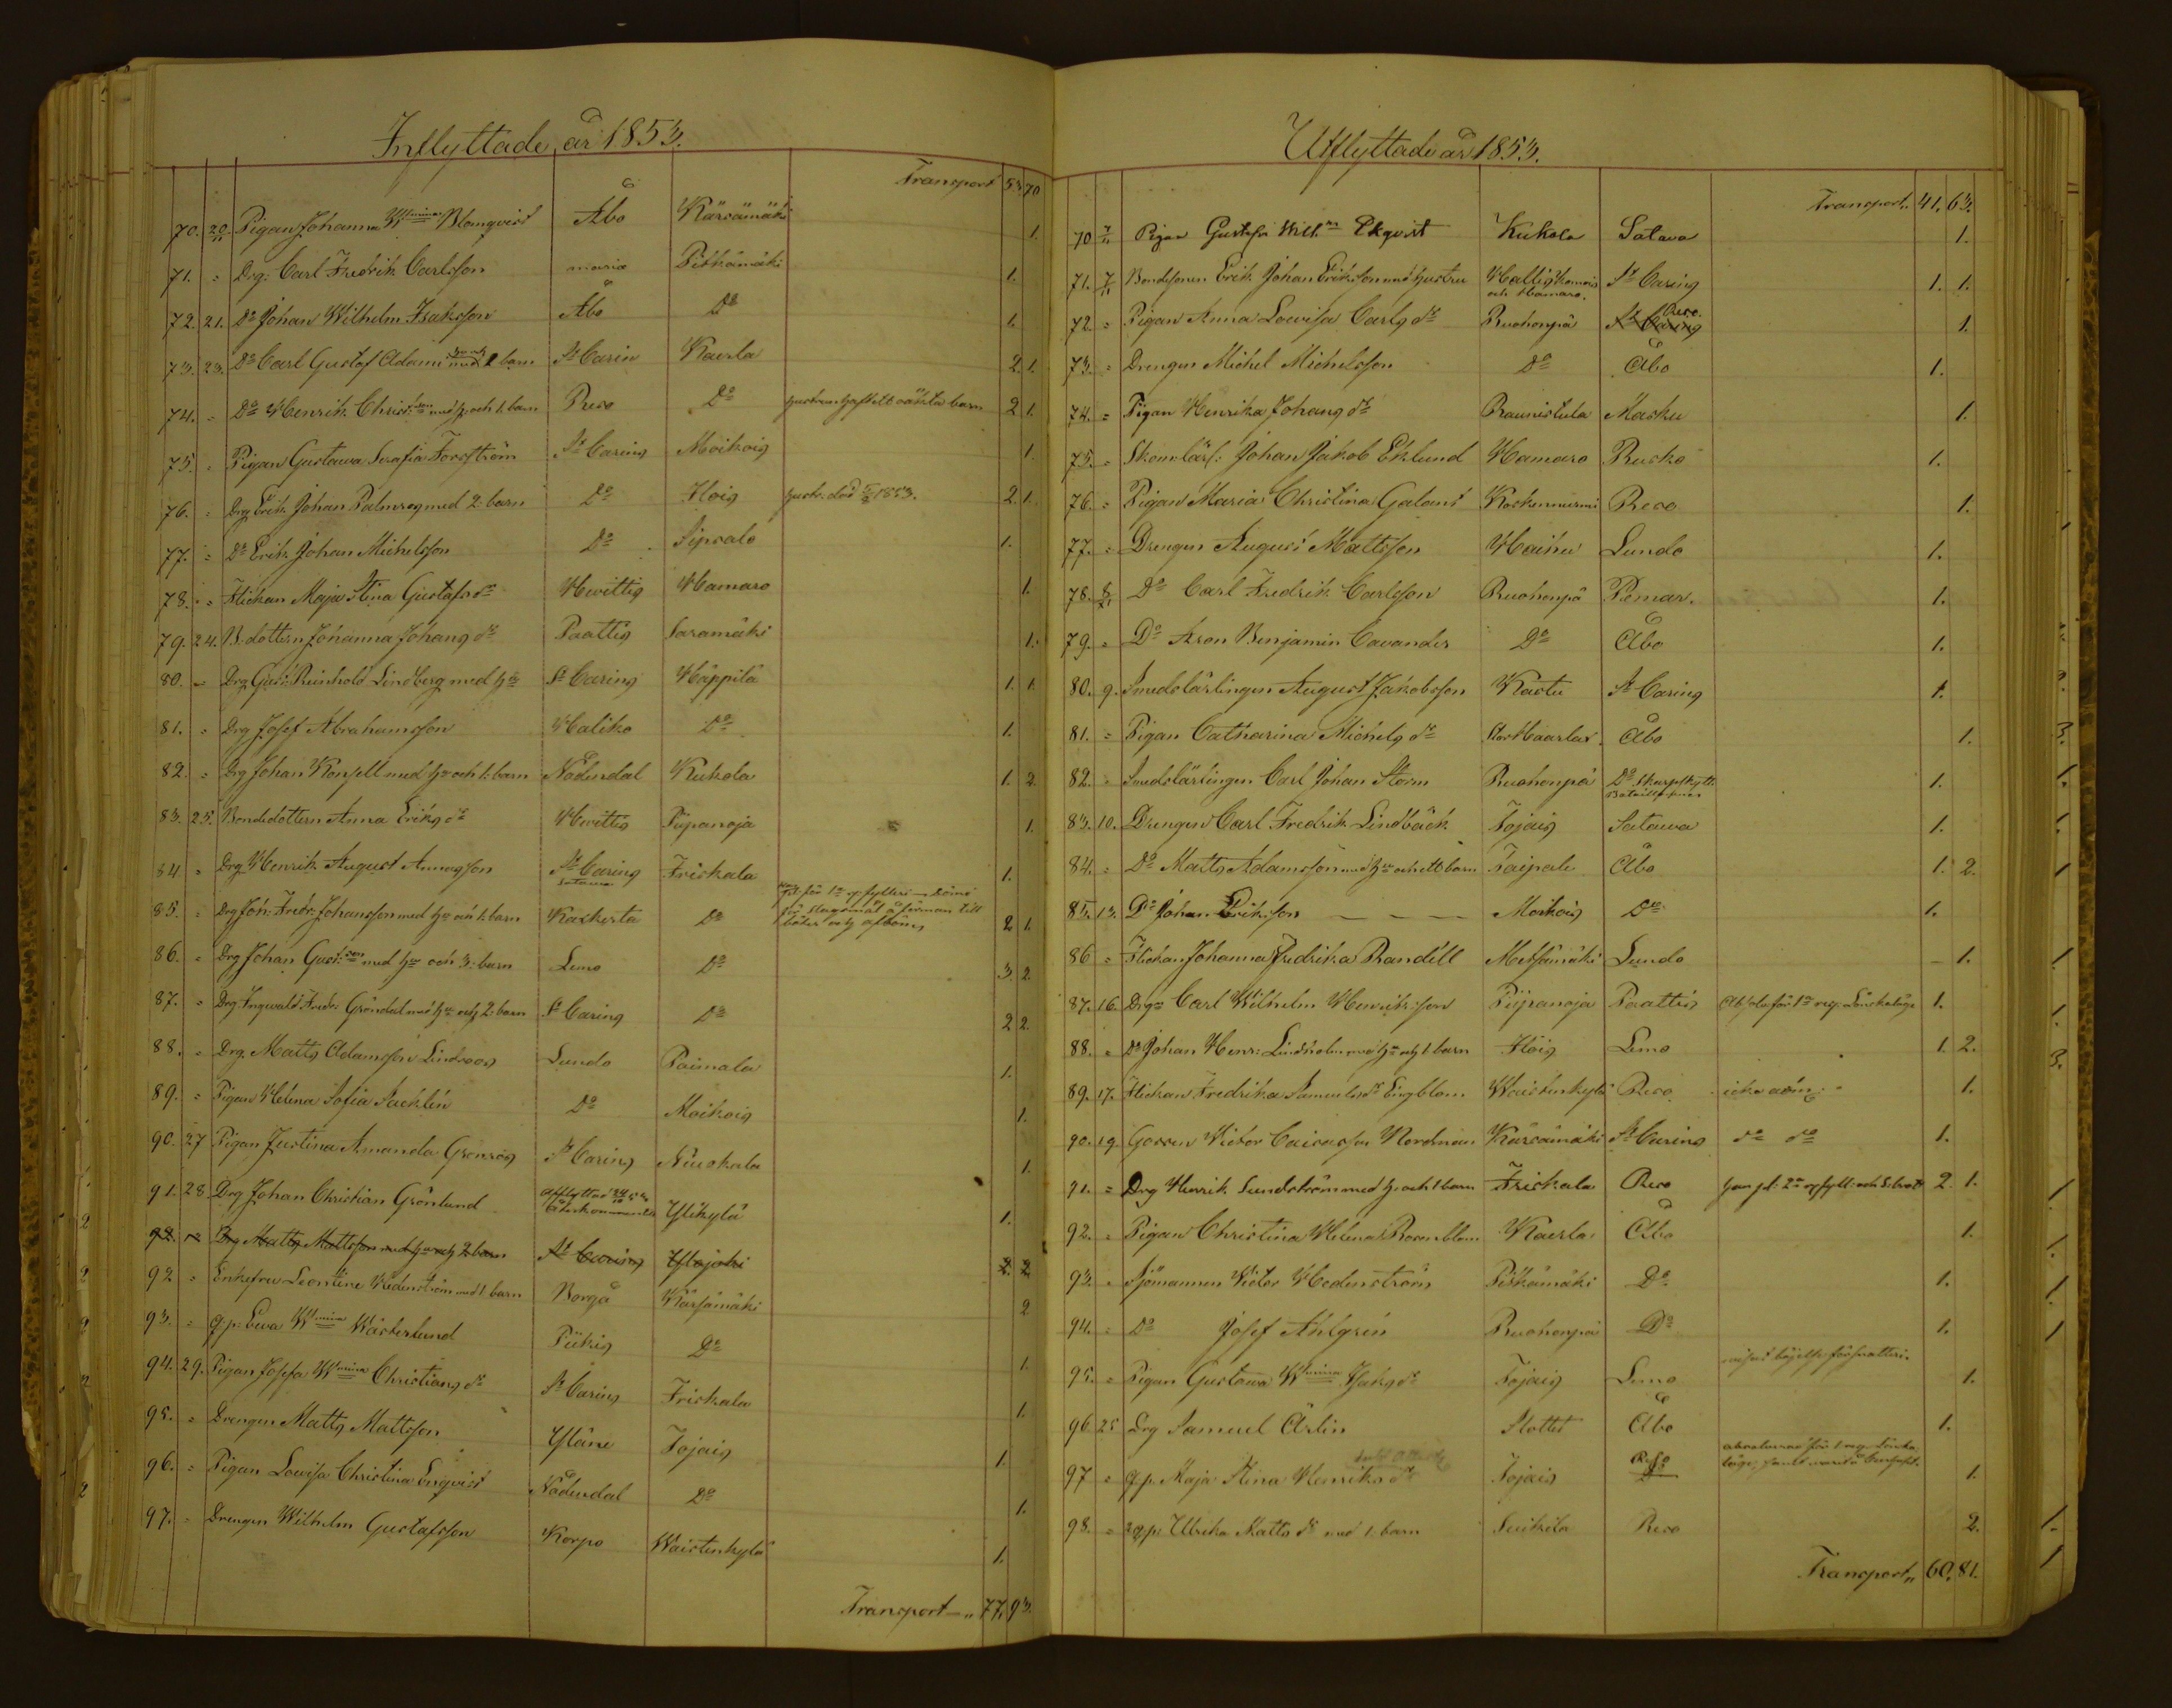 Inflyttade år 1853.
Transport 53 70
70. 20/11 Pigan Johanna Wmina Blomqvist Åbo Kärsämäki 1.
71. " Drg. Carl Fredrik Carlsson Maria Pitkämäki 1.
72. 21. Do Johan Wilhelm Isaksson Åbo Do 1.
73. 23. Do Carl Gustaf Adami med 1 barn St Carin Kaerla 2. 1.
74. " Do Henrik Christ:son med h. och 1. barn Reso Do hustrun haft ett oäkta barn 2 1.
75. " Pigan Gustawa Serafia Forsström St Carins Moikois 1.
76. " Drg Erik Johan Palmros med 2. barn Do Ilois hustr. död 1853. 2. 1.
77. " Do Erik Johan Michelsson Do Sipsalo 1.
78. " Flickan Maja Stina Gustafsdr Hwittis Hamaro 1.
79. 24. B.dottern Johanna Johansdr Paattis Saramäki 1.
80. " Drg Gust. Reinhold Lindberg med hu St Carins Häppilä 1. 1.
81. " Drg Josef Abrahamsson Haliko Do 1.
82. " Drg Johan Konsell med hu och 1. barn Nådendal Kukola 1. 2.
83. 25. Bondedottern Anna Eriksdr Hwittis Piipanoja 1.
84 " Drg Henrik August Annasson St Carins Satawa Friskala 1.
85. " Drg Joh. Fredr. Johansson med hu och 1. barn Kaskerta Do 2 1.
86. " Drg Johan Gust:son med hu och 3. barn Lemo Do 3. 2
87. " Drg Ingewald Fredr. Gröndal med hu och 2. barn St Carins Do 2 2.
88. " Drg. Matts Adamsson Lindroos Lundo Paimala 1.
89. " Pigan Helena Sofia Sacklén Do Moikois 1.
90. 27 Pigan Justina Amanda Grönros St Carins Niuskala 1.
91. 28 Drg Johan Christian Grönlund Afflyttad Ylikylä 1.
92. " Drg Matts Mattsson med hu och 2. barn St Carins Ylajoki 2. 2
92 " Enkefru Leontine Wedenström med 1. barn Borgå Kärsämäki 2
93. " q.p. Ewa Wmina Wästerlund Piikis Do 1.
94. 29. Pigan Josefa Wmina Christiansdr St Carins Friskala 1.
95. " Drengen Matts Mattsson Yläne Jojais 1.
96. " Pigan Lowisa Christina Enqvist Nådendal Do 1.
97. " Drengen Wilhelm Gustafsson Korpo Waistenkylä 1.
Transport " 77. 93.
Utflyttade år 1853.
Transport. 41. 63.
70 7/11 Pigan Gustafva Wilh:na Ekqvist Kukola Satava 1.
71. 7/11 Bondesonen Erik Johan Eriksson med hustru Hallis och Hamaro. St Carins 1. 1.
72. " Pigan Anna Lowisa Carlsdr Ruohonpä St Carins Reso. 1.
73. " Drengen Michel Michelsson Do Åbo 1.
74. " Pigan Henrika Johansdr Raunistula Masku 1.
75. " Skom.lärl: Johan Jakob Eklund Hamaro Rusko 1.
76. " Pigan Maria Christina Galant Koskennurmi Reso 1.
77. " Drengen August Mattsson Haihu Lundo 1.
78. 8/11 Do Carl Fredrik Carlsson Ruohonpä Pemar. 1.
79. " Do Aron Benjamin Cavander Do Åbo 1.
80. 9. Smedslärlingen August Jakobsson Kastu St Carins 1.
81. " Pigan Catharina Michelsdr Stor Haarlax Åbo 1.
82. " Smedslärlingen Carl Johan Storm Ruohonpä Do Skarpskytt. Bataillonen 1.
83. 10. Drengen Carl Fredrik Lindbäck Jojais Satawa 1.
84. " Do Matts Adamsson med hu och ett barn Taipale Åbo 1. 2.
85. 13. Do Johan Eriksson Moikois Do 1.
86 " Flickan Johanna Fredrika Randéll Metsämäki Lundo 1.
87. 16. Drg Carl Wilhelm Henriksson Piipanoja Paattis Absol. för 1a res. Lönskaläge 1.
88. " Do Johan Henr: Lindholm med hu och 1 barn Ilois Lemo 1. 2.
89. 17. Flickan Fredrika Samuelsdr Engblom Waistenkylä Reso. icke adm: 1.
90. 19. Gossen Victor Caisasson Nordman Kärsämäki St Carins do do 1.
91. " Drg Henrik Sundström med h. och 1 barn Friskala Reso 2 1.
92. " Pigan Christina Helena Rosenblom Kaerla Åbo 1.
93. " Sjömannen Victor Hedenström Pitkämäki Do 1.
94. " Do Josef Ahlgrén Ruohonpä Do 1.
95. " Pigan Gustawa Wmina Isaksdr Jojais Lemo 1.
96 25 Drg Samuel Ärlin Slottet Åbo 1.
97 " q.p. Maja Stina Henriksdr Jojais Reso 1.
98. " q.p. Ulrika Mattsdr med 1. barn Suikila Reso 2.
Transport " 60. 81.